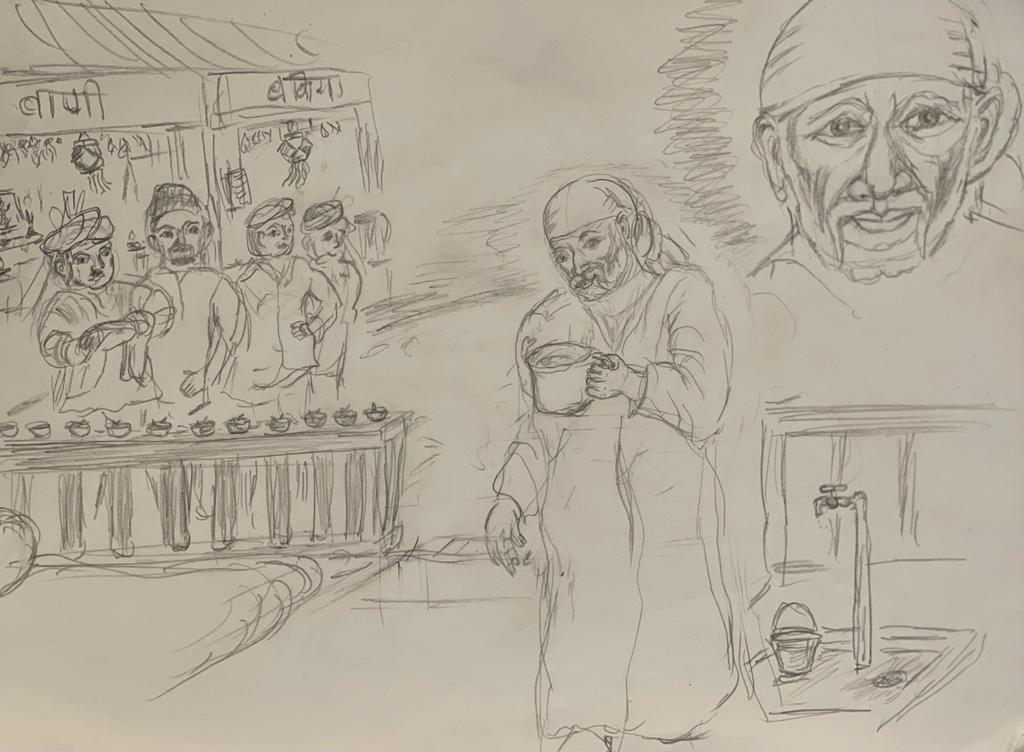 वाणी
बनिया